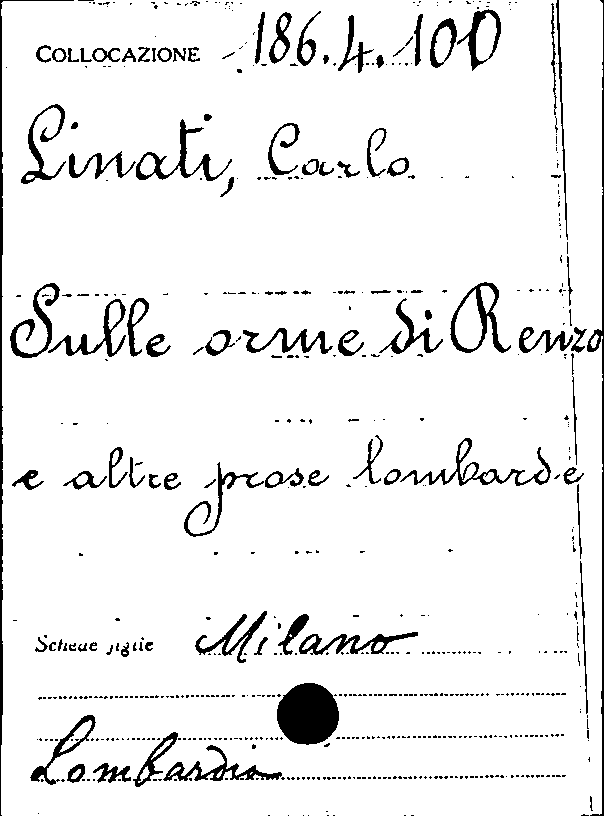 COLLOCAZIONE 186.4.100
Linati, Carlo
Sulle orme di Renzo
e altre prose lombarde
Schede figlie Milano
Lombardia